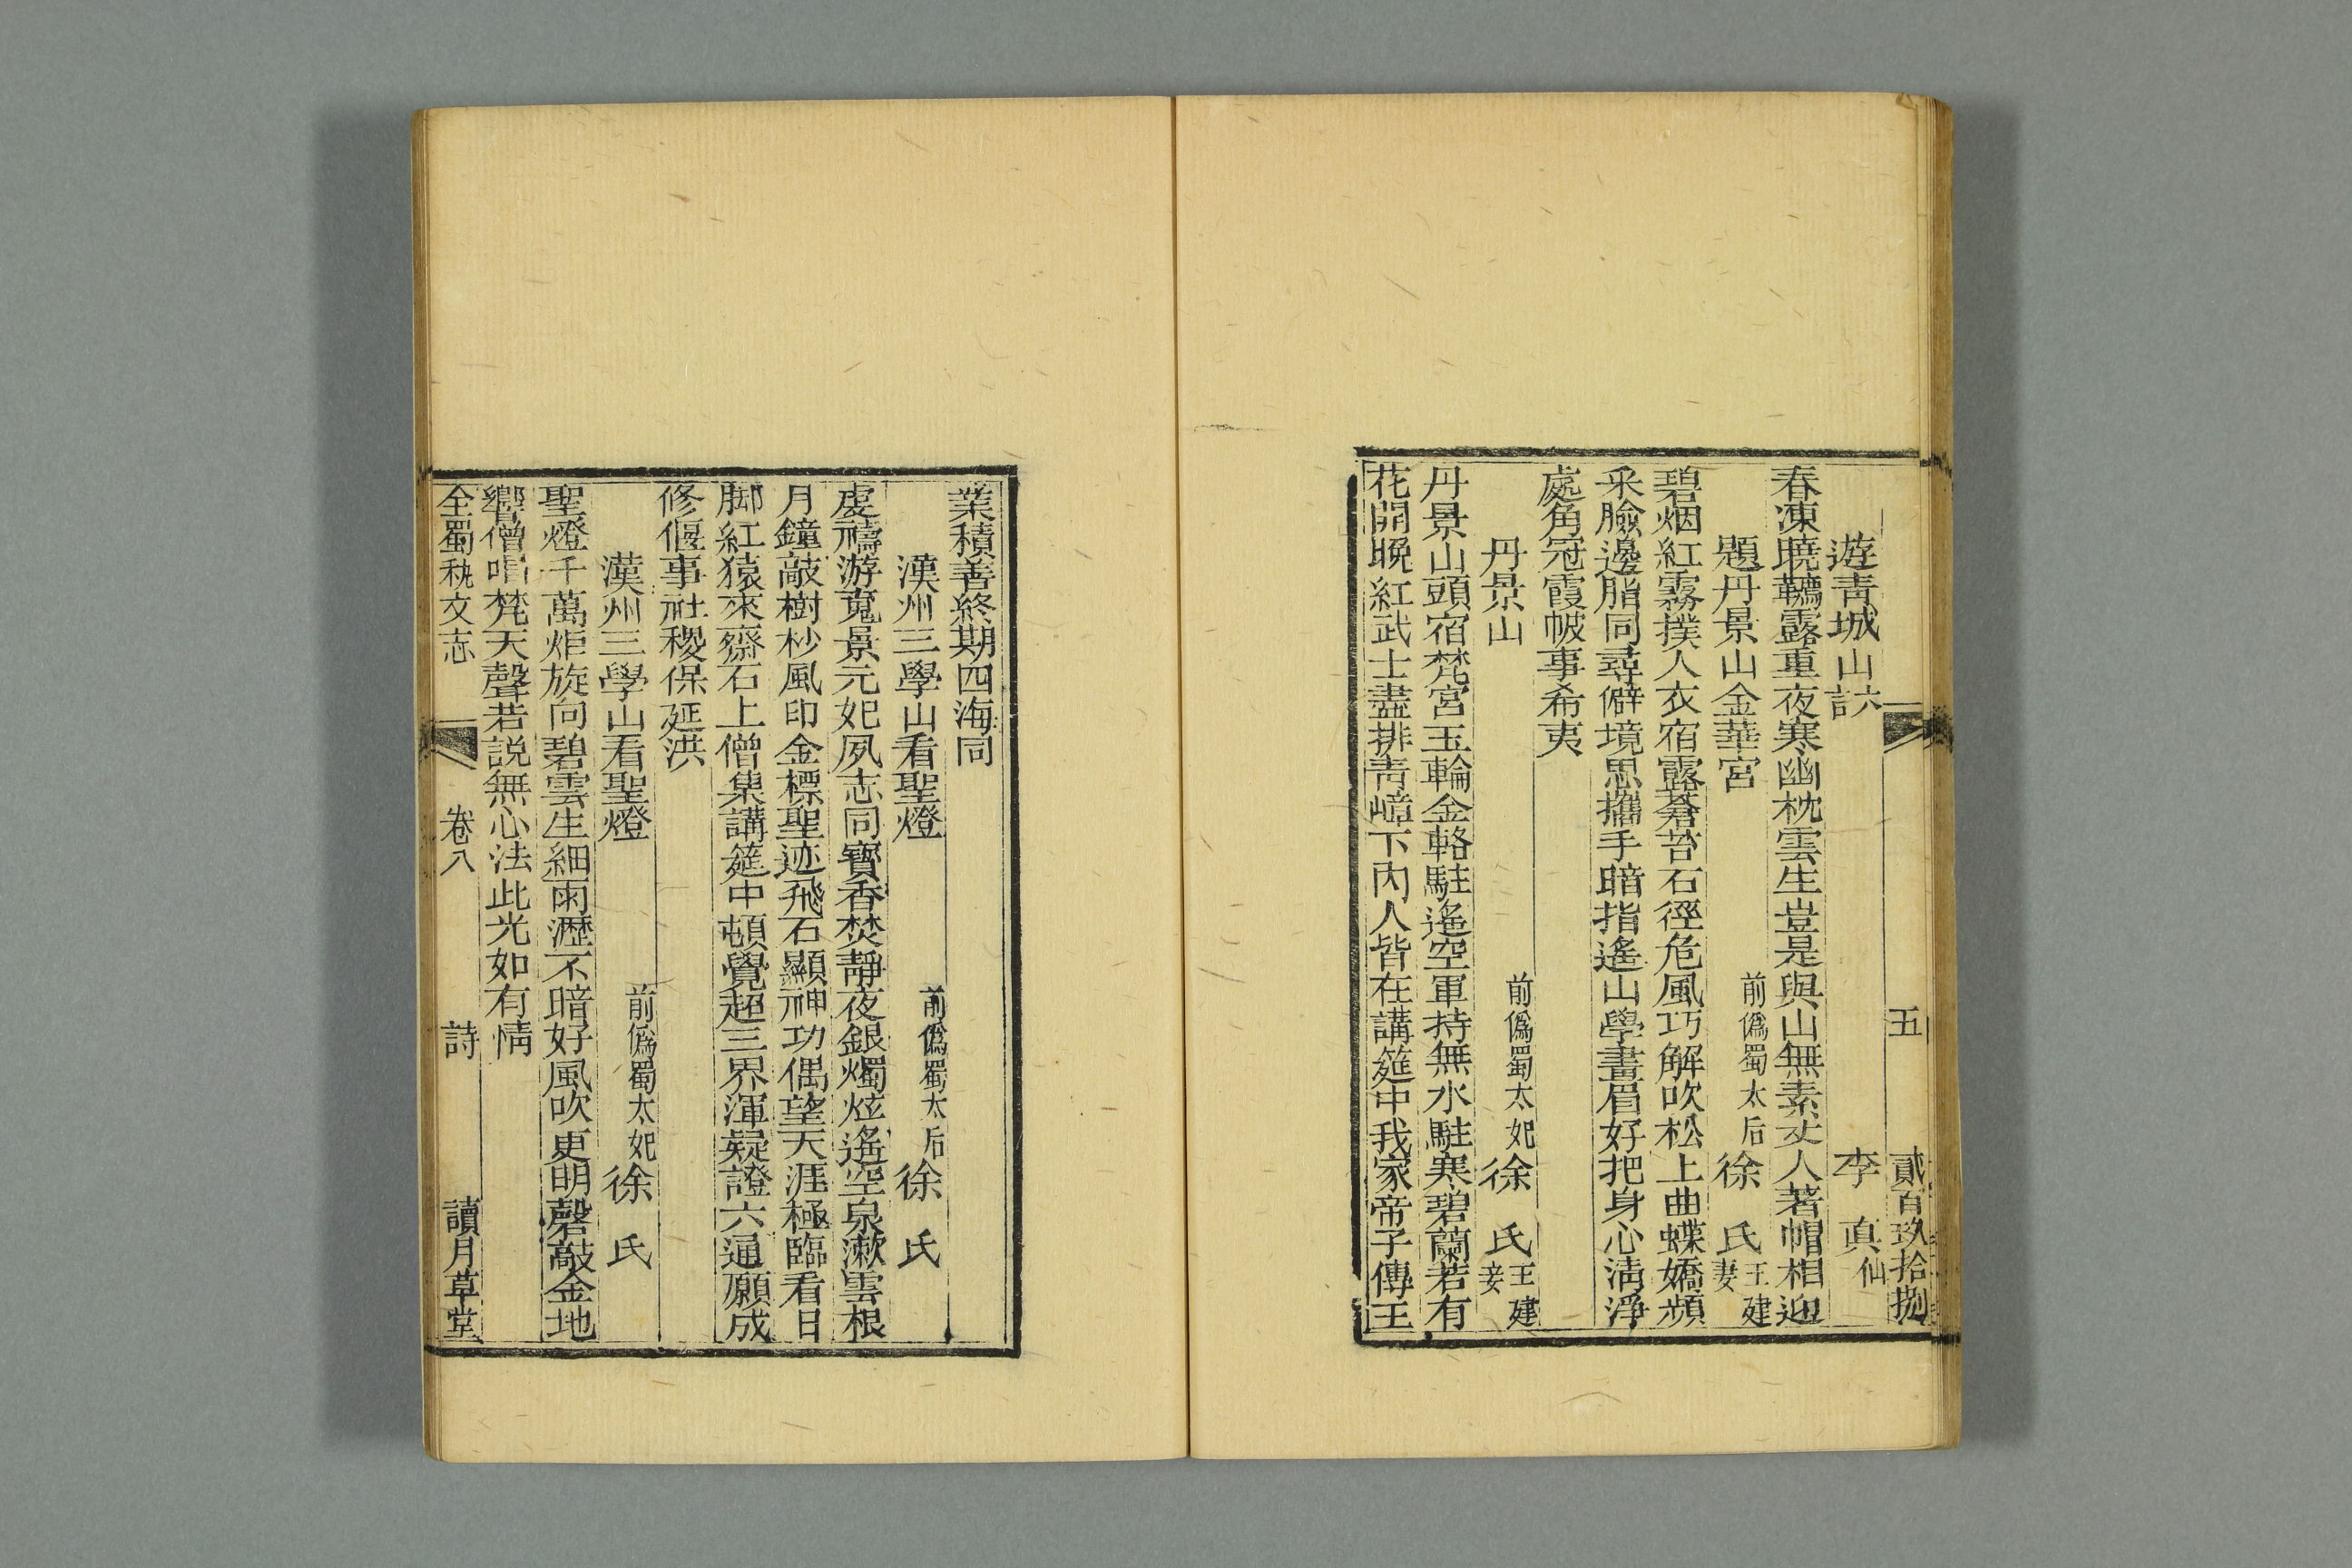 五 貳百玖拾捌
遊青城山訣 李真仙
春凍曉韉露重夜寒幽枕雲生豈是與山無素丈人著帽相迎
題丹景山金華宮 前僞蜀太后徐氏王建妻
碧烟紅霧撲人衣宿露蒼苔石徑危風巧解吹松上曲蝶嬌頻
采臉邊脂同尋僻境思攜手暗指遙山學畫眉好把身心淸淨
處角冠霞帔事希夷
丹景山 前僞蜀太妃徐氏王建妾
丹景山頭宿梵宮玉輪金輅駐遙空軍持無水駐寒碧蘭若有
花開晚紅武士盡排靑嶂下內人皆在講筵中我家帝子傳王
業積善終期四海同
漢州三學山看聖燈 前僞蜀太后徐氏
虔禱游嵬景元妃夙志同寶香焚靜夜銀燭炫遙空泉漱雲根
月鐘敲樹杪風印金標聖迹飛石顯神功偶望天涯極臨看日
脚紅猿來齋石上僧集講筵中頓覺超三界渾疑證六通願成
修偃事社稷保延洪
漢州三學山看聖燈 前僞蜀太妃徐氏
聖燈千萬炬旋向碧雲生細雨瀝不暗好風吹更明磬敲金地
響僧唱梵天聲若說無心法此光如有情
全蜀秇文志 卷八 詩 讀月草堂